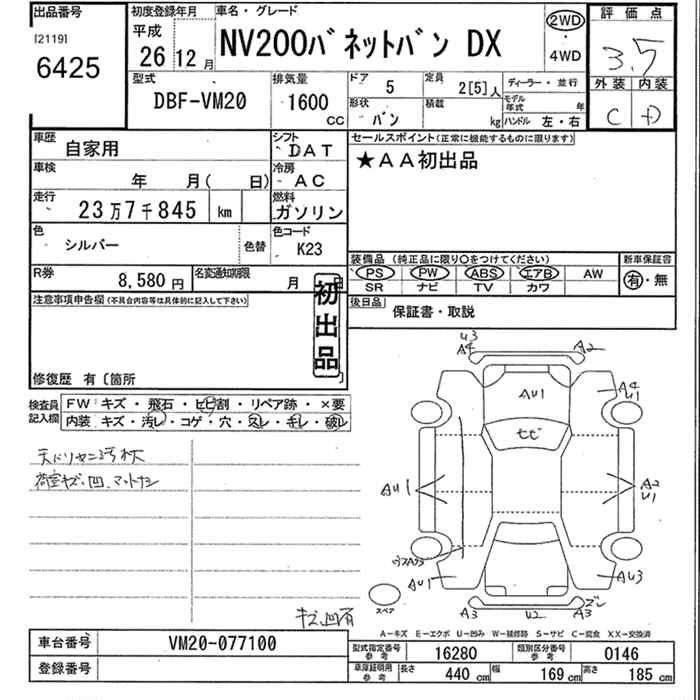 出品番号
[2119]
6425
初度登録年月
平成
26 12 月
車名・グレード
NV200バネットバン DX
2WD
・
4WD
評価点
3.5
外装 内装
C D
型式
DBF-VM20
排気量
1600
CC
ドア
5
定員
2[5]人
形状
バン
積載
kg
ディーラー・並行
モデル年式
年
ハンドル 左・右
車歴
自家用
シフト
DAT
車検
年 月( 日)
冷房
AC
走行
23万7千845 km
燃料
ガソリン
色
シルバー
色替
色コード
K23
R券
8,580 円
名変通知期限
月
セールスポイント(正常に機能するものに限ります)
★AA初出品
装備品(純正品に限り○をつけてください)
PS PW ABS エアB AW
SR ナビ TV カワ
新車保証書
有・無
後日品
保証書・取説
注意事項申告欄(不具合内容等は具体的に記入して下さい)
初出品
修復歴 有〔箇所
検査員記入欄
FW キズ・飛石・ヒビ割・リペア跡・×要
内装 キズ・汚レ・コゲ・穴・スレ・キレ・破レ
荷室キズ、凹、マットナシ
キズ、凹有
U3
A4
A2
AU1
A4
U1
ヒビ
AU1
A2
U1
AU1
AU3
スペア
A3
U2
A3
ズレ
A-キズ E-エクボ U-凹み W-補修跡 S-サビ C-腐食 XX-交換済
車台番号
VM20-077100
登録番号
型式指定番号
参考
16280
類別区分番号
参考
0146
車庫証明用
参考
長さ 440 cm 幅 169 cm 高さ 185 cm